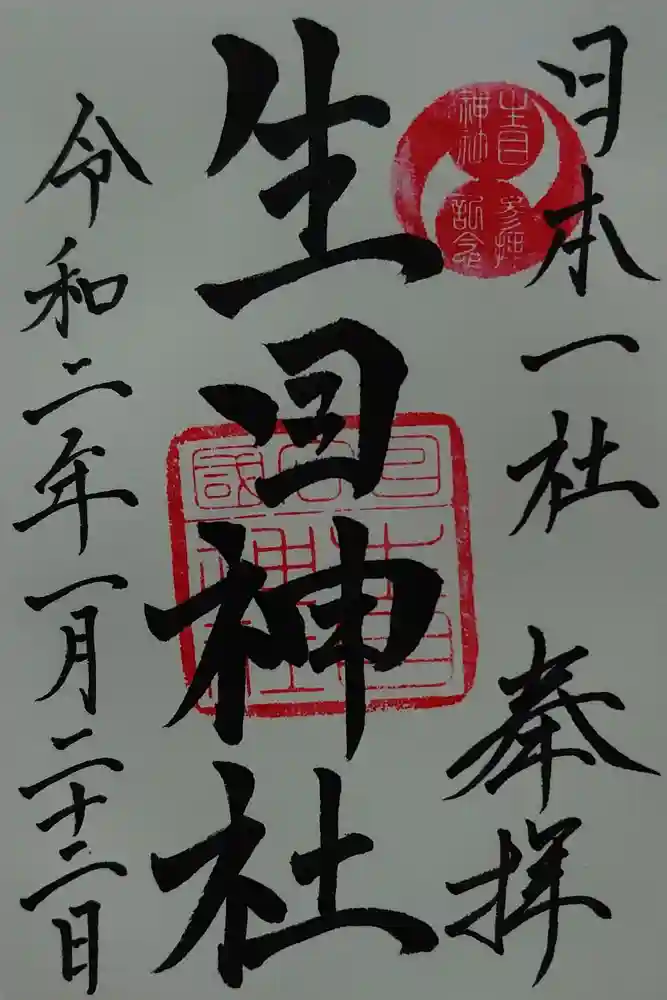 日本一社　奉拝
生目
神社
参拝
記念
生目神社
日向國
生目
神社
令和二年一月二十二日